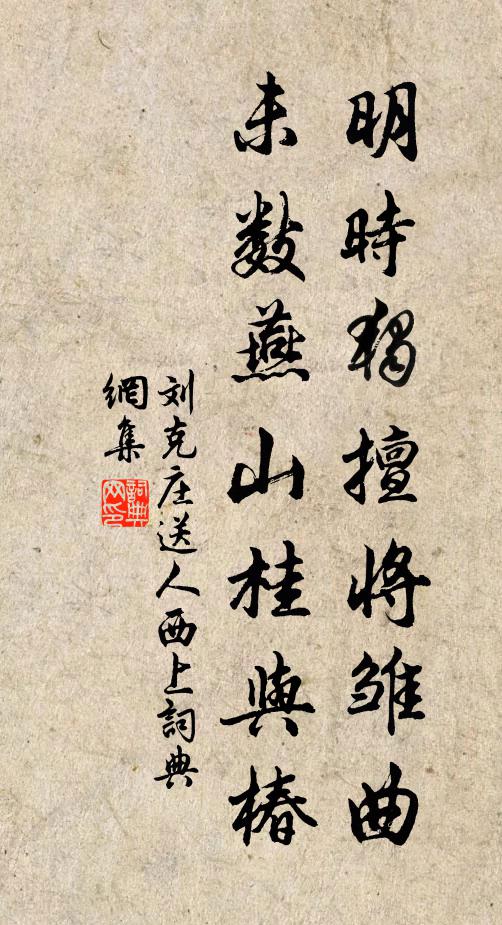 明時獨擅將雛曲
未數燕山桂與椿
刘克庄送人西上詞典
網集
詞典
网印